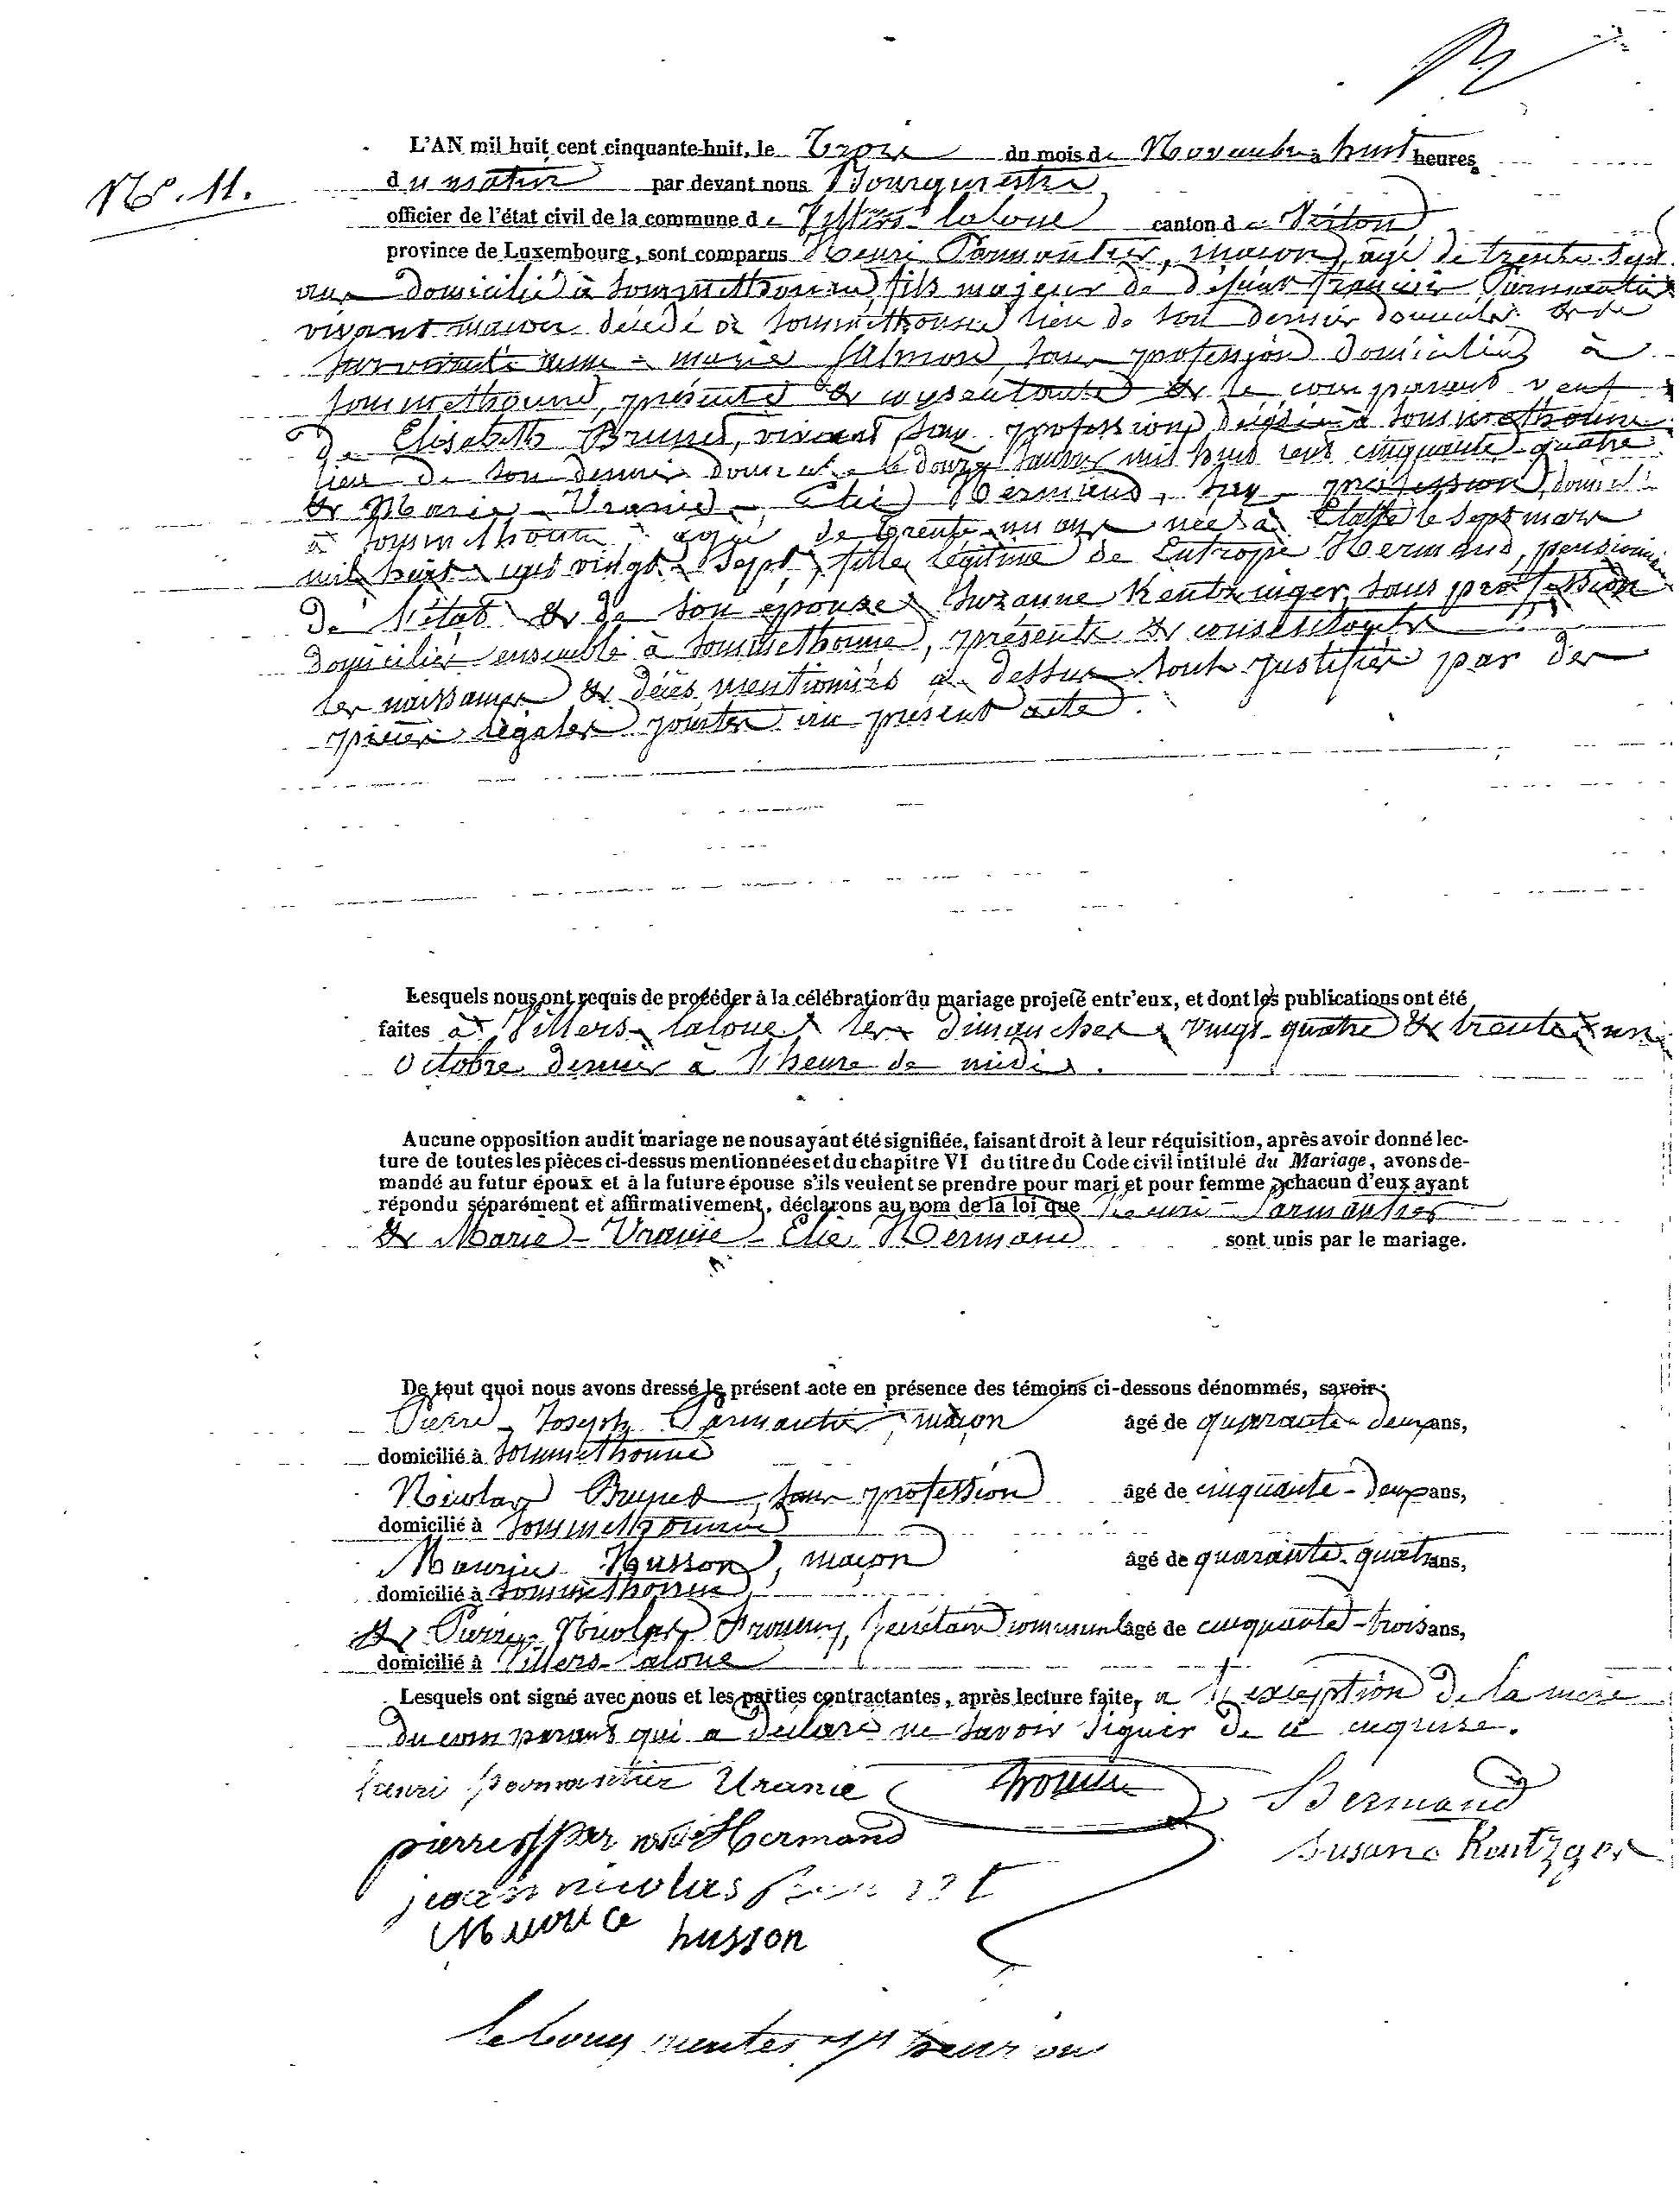 N°. 11.
L'AN mil huit cent cinquante-huit, le Trois du mois de Novembre à huit heures
du matin par devant nous Bourgmestre
officier de l'état civil de la commune de Villers-laloue canton de Virton
province de Luxembourg, sont comparus Henri Parmantier, maçon, agé de trente sept
ans domicilié à Sommethonne fils majeur de défunt François Parmentier
vivant maçon décédé à Sommethonne lieu de son dernier domicile et de
survivante anne-marie Salmon, sans profession domiciliée à
Sommethonne, présente & consentante & le comparant veuf
De Elisabeth Brunet, vivant sans profession décédée à Sommethonne
lieu de son dernier domicile le douze mil huit cent cinquante-quatre
& Marie-Uranie-Elie Hermand, sans profession, domicil:
à Sommethonne agée de trente un ans née à le sept mars
mil huit cent vingt-sept, fille légitime de Eutrope Hermand, pensionné
De l'état & de son épouse Suzanne Kentzinger, sans profession
Domiciliés ensemble à Sommethonne, présents & consentants
les naissances & décès mentionnés ci-dessus sont justifiés par des
pièces légales jointes au présent acte.
Lesquels nous ont requis de procéder à la célébration du mariage projeté entr'eux, et dont les publications ont été
faites à Villers-laloue les Dimanches vingt-quatre & trente-un
Octobre dernier à l'heure de midi.
Aucune opposition audit mariage ne nous ayant été signifiée, faisant droit à leur réquisition, après avoir donné lec-
ture de toutes les pièces ci-dessus mentionnées et du chapitre VI du titre du Code civil intitulé du Mariage, avons de-
mandé au futur époux et à la future épouse s'ils veulent se prendre pour mari et pour femme ; chacun d'eux ayant
répondu séparément et affirmativement, déclarons au nom de la loi que Henri Parmantier
& Marie-Uranie-Elie Hermand sont unis par le mariage.
De tout quoi nous avons dressé le présent acte en présence des témoins ci-dessous dénommés, savoir:
Pierre-Joseph Parmantier, maçon âgé de quarante-deux ans,
domicilié à Sommethonne
Nicolas Brunet, sans profession âgé de cinquante-deux ans,
domicilié à Sommethonne
Maurice Husson, maçon âgé de quarante-quatre ans,
domicilié à Sommethonne
& Pierre-Nicolas, secrétaire communal âgé de cinquante-trois ans,
domicilié à Villers-laloue
Lesquels ont signé avec nous et les parties contractantes, après lecture faite, à l'exception de la mère
du comparant qui a déclaré ne savoir signer de ce enquise.
henri parmantier Uranie Hermand
pierre Hermand Susane Kentzger
jean nicolas
Maurice husson
le bourgmestre